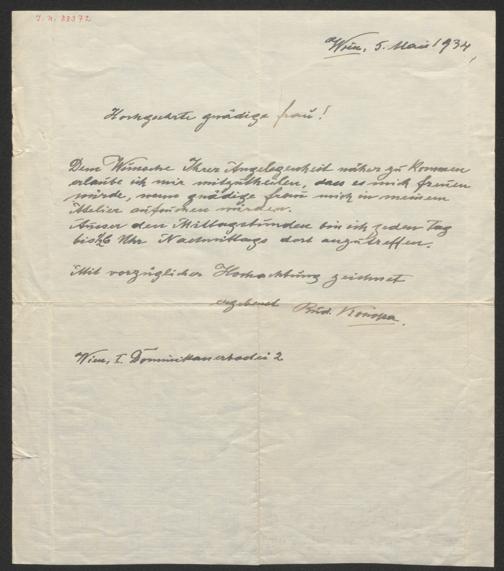 J. N. 88372
Wien, 5. März 1934
Hochgeehrte gnädige Frau!
Dem Wunsche Ihrer Angelegenheit näher zu kommen
erlaube ich mir mitzutheilen, dass es mich freuen
würde, wenn gnädige Frau mich in meinem
Atelier aufsuchen würden.
Ausser den Mittagstunden bin ich jeden Tag
bis ½6 Uhr Nachmittags dort anzutreffen.
Mit vorzüglicher Hochachtung zeichnet
ergebenst Rud. Konopa.
Wien, I. Dominikanerbastei 2